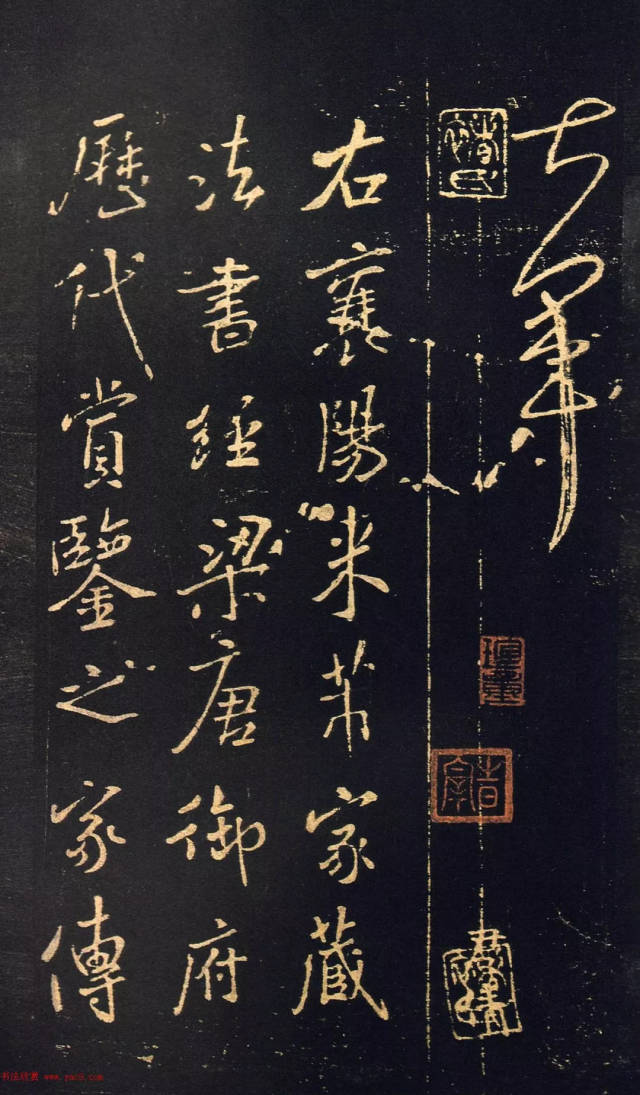 右襄陽米芾家藏
法書經梁唐御府
歷代賞鑒之家傳
书法欣赏 www.yac8.com